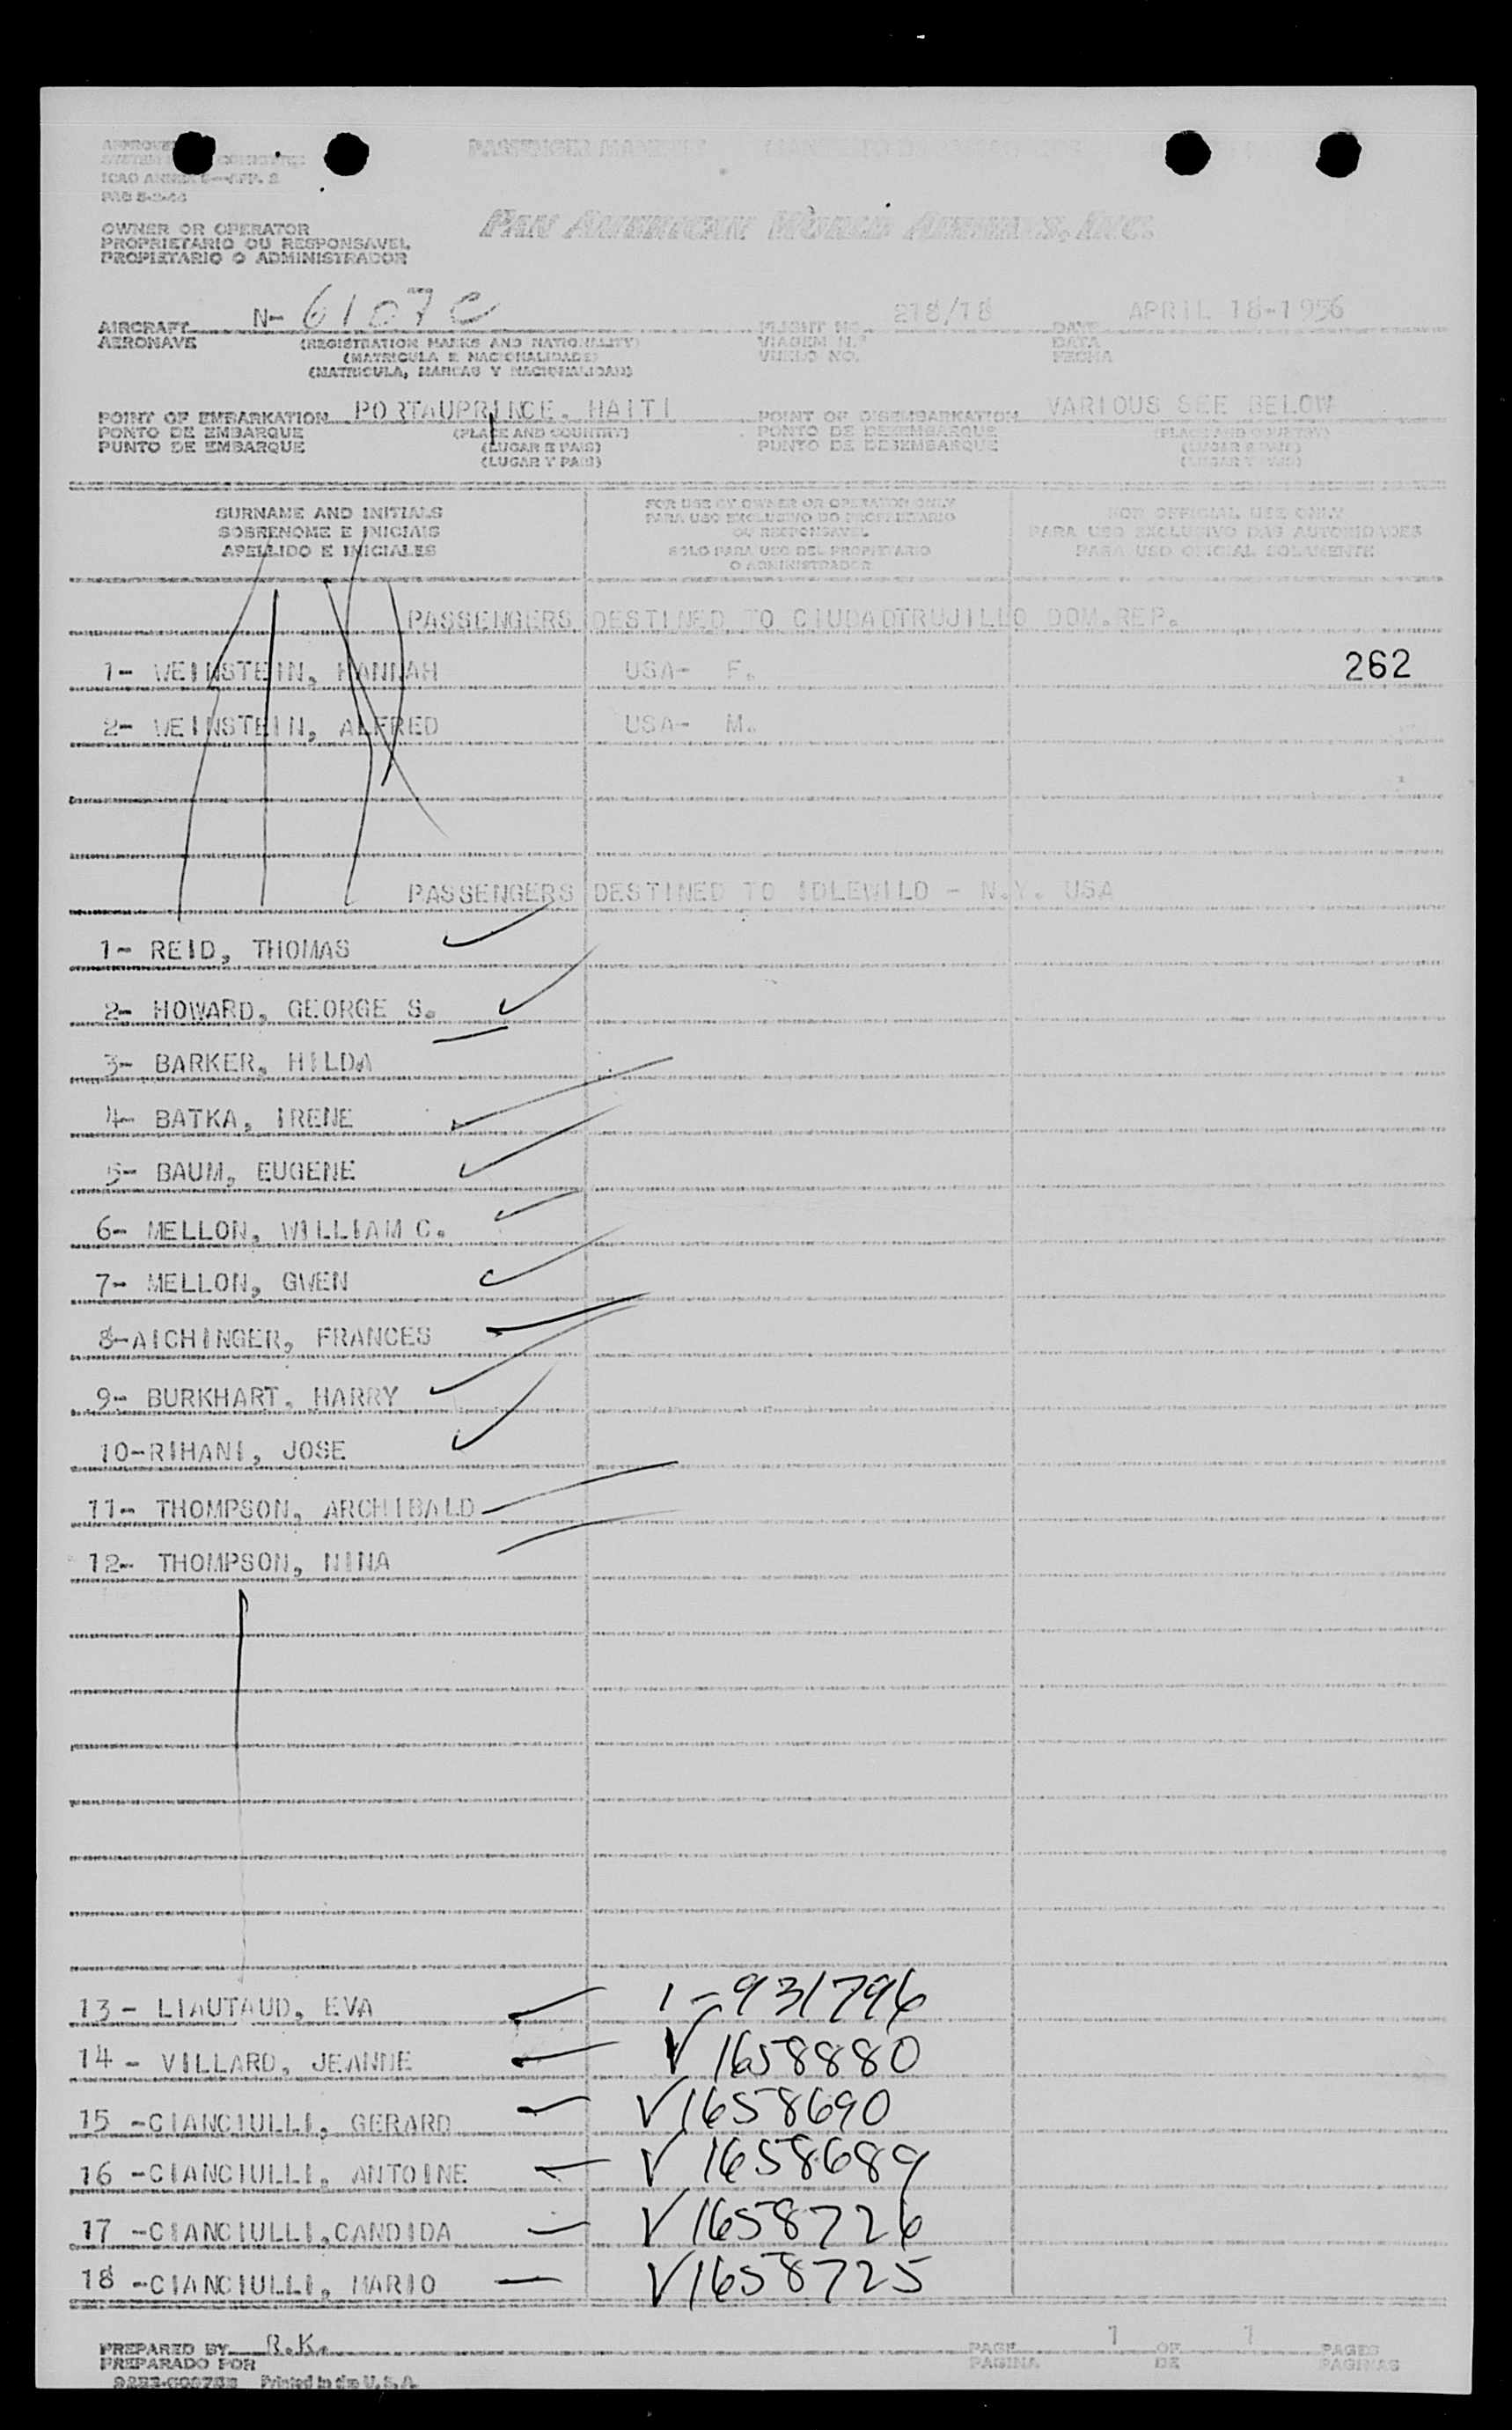 APPROVED
SYSTEM COMMITTEE
ICAO ANNEX 9—APP. 3
PASSENGER MANIFEST
OWNER OR OPERATOR
PROPRIETARIO OU RESPONSAVEL
PROPIETARIO O ADMINISTRADOR
PAN AMERICAN WORLD AIRWAYS, INC.
AIRCRAFT N- 6107C FLIGHT NO. 218/18 DATE APRIL 18-1956
AERONAVE (REGISTRATION MARKS AND NATIONALITY) VIAGEM N.º DATA
(MATRICULA E NACIONALIDADE) VUELO NO. FECHA
(MATRICULA, MARCAS Y NACIONALIDAD)
POINT OF EMBARKATION PORTAUPRINCE. HAITI POINT OF DISEMBARKATION VARIOUS SEE BELOW
PONTO DE EMBARQUE (PLACE AND COUNTRY) PONTO DE DESEMBARQUE (PLACE AND COUNTRY)
PUNTO DE EMBARQUE (LUGAR E PAIS) PUNTO DE DESEMBARQUE (LUGAR E PAIS)
(LUGAR Y PAIS) (LUGAR Y PAIS)
SURNAME AND INITIALS
SOBRENOME E INICIAIS
APELLIDO E INICIALES
FOR USE BY OWNER OR OPERATOR ONLY
PARA USO EXCLUSIVO DO PROPRIETARIO
OU RESPONSAVEL
SOLO PARA USO DEL PROPIETARIO
O ADMINISTRADOR
FOR OFFICIAL USE ONLY
PARA USO EXCLUSIVO DAS AUTORIDADES
PARA USO OFICIAL SOLAMENTE
PASSENGERS DESTINED TO CIUDADTRUJILLO DOM.REP.
1- WEINSTEIN, HANNAH USA- F. 262
2- WEINSTEIN, ALFRED USA- M.
PASSENGERS DESTINED TO IDLEWILD - N.Y. USA
1- REID, THOMAS
2- HOWARD, GEORGE S.
3- BARKER, HILDA
4- BATKA, IRENE
5- BAUM, EUGENE
6- MELLON, WILLIAM C.
7- MELLON, GWEN
8-AICHINGER, FRANCES
9- BURKHART, HARRY
10-RIHANI, JOSE
11- THOMPSON, ARCHIBALD
12- THOMPSON, NINA
13 - LIAUTAUD, EVA 1-931796
14 - VILLARD, JEANNE V 1658880
15 -CIANCIULLI, GERARD V1658690
16 -CIANCIULLI, ANTOINE V 1658689
17 -CIANCIULLI,CANDIDA V1658726
18 -CIANCIULLI, MARIO V1658725
PREPARED BY R.K. PAGE 1 OF 1 PAGES
PREPARADO POR PAGINA DE PAGINAS
Printed in the U.S.A.